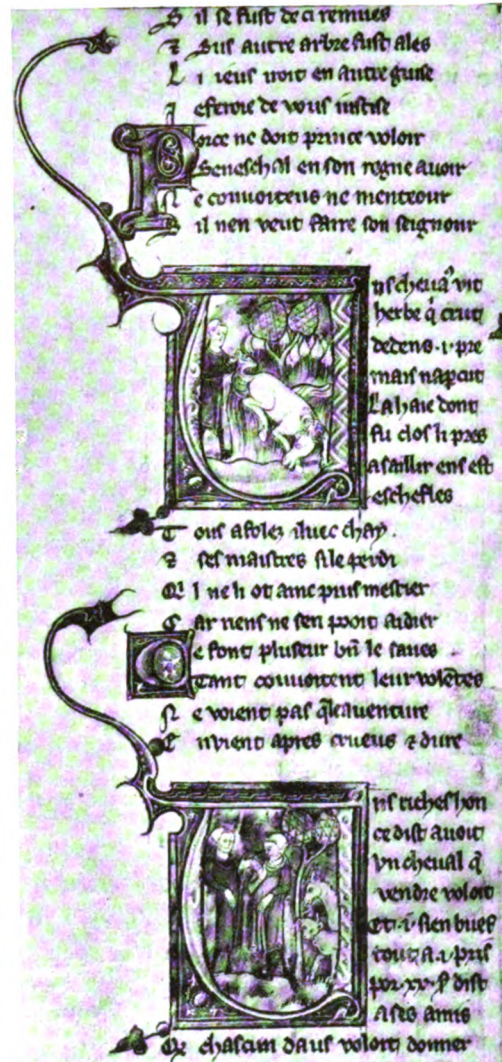 S il se fust de ci remues
⁊ Sus autre arbre fust ales
L i ieus uoit en autre guise
efteroie de vous
P orce ne doit prince voloir
Seneschal en son regne auoir
N e conuoiteus ne menteour
il nen veut faire son seignour
V ns cheuaˢ vit
herbe q̄ crut
dedens .i. pre
mais napcut
La haie dont
fu clos li pres
a saillir ens est
eschesses
T ous afolez iluec chay.
⁊ ses maistres si le perdi
Q̄ l ne li ot ainc puis mestier
C ar riens ne sen pooit aidier
C e font pluseur bn̄ le saues
Tant conuoitent leur volētes
N e voient pas q̄ leauenture
C i vient apres crueus ⁊ dure
V ns riches hon
ce dist auoit
vn cheual q̄
vendre voloit
Et .i. sien buef
tout a .i. pris
por .xv. ł dist
a ses amis
Q̄ chascun daus voloit donner